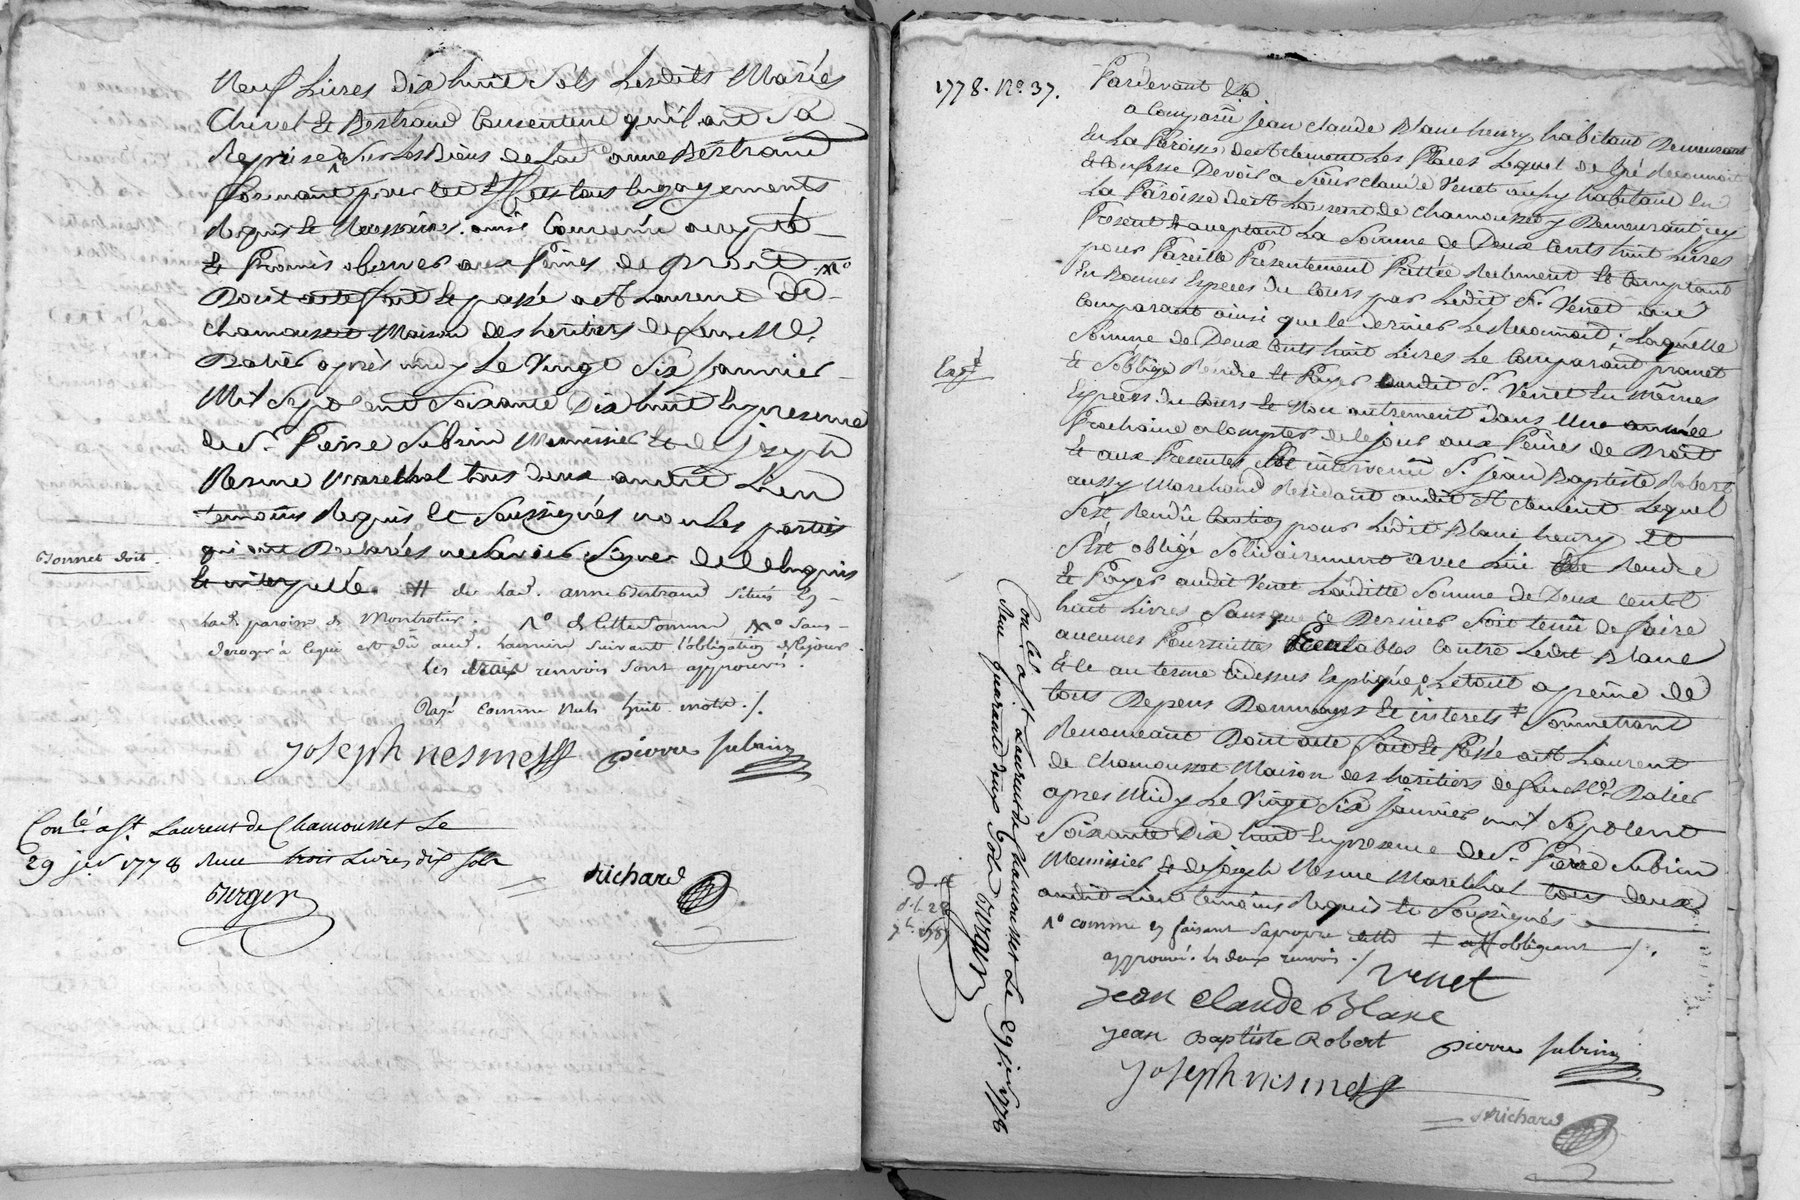 Neuf Livres Dix huit Sols Lesdits Mariés
Chirel et Bertrand Consentent qu'il ait Sa
Reprise Sur les Biens de Lad. anne Bertrand
formant pour cet Effet tous Engagements
Requis et Necessaires. ainsi Convenu accepté
et Promis observer aux Peines de Droit
Dont acte fait et passé a St Laurent De
Chamousset Maison des heritiers de feu Me.
Ratier après midy Le Vingt Six Janvier
Mil Sept cent Soixante Dix huit En presence
de Sr. Pierre Subrin Menuisier et de joseph
Nesme Marechal tous deux audit Lieu
temoins Requis et Soussignés non Les parties
qui ont Declarés ne Savoir Signer de ce Enquis
et interpellé. # de Lad. anne Bertrand Situés En
Bonnet doit.
lad. paroisse de Montrotier. de cette Somme Sans
deroger à ce qui est dû aud. suivant l'obligation de ce jour.
Les trois renvois Sont approuvés.
Rayé comme nuls huit mots ./.
joseph nesme pierre subrin
Conlé a St. Laurent de Chamousset Le
29 jer 1778 Reçu trois Livres dix Sols
Richard
1778. No. 37.
Pardevant &a
a Comparu jean claude Blanc henry habitant Demeurant
En La Paroisse de St Clement Les Places Lequel de Gré Reconnoit
et Confesse Devoir a Sieur claude Venet aussy habitant En
La Paroisse de St Laurent de Chamousset y Demeurant icy
Present et acceptant La Somme de Deux Cents huit Livres
pour Pareille Presentement Prettée Reelement et Comptant
En Bonnes Especes du Cours par Ledit Sr. Venet au
Comparant ainsi que le dernier Le Reconnoit; Laquelle
Somme de Deux Cents huit Livres Le Comparant promet
et S'oblige Rendre et Payer audit Sr. Venet En mêmes
Especes du Cours et Non autrement dans Une année
Prochaine a Compter de ce jour aux Peines de Droit
et aux Presentes Est intervenu Sr. jean Baptiste Robert
aussy Marchand Residant audit St Clement Lequel
S'est Rendû Caution pour Ledit Blanc henry et
S'est obligé Solidairement avec Lui de Rendre
et Payer audit Venet Laditte Somme de Deux Cents
huit Livres Sans que ce Dernier Soit tenû de faire
aucunes Poursuittes Prealables Contre Ledit Blanc
et ce au terme cidessus Expliqué Le tout a peine de
tous Depens Dommages et interets Soumettant
Renonceant Dont acte fait et Passé a St Laurent
de Chamousset Maison des heritiers de feu Me. Ratier
apres Midy Le Vingt Six Janvier mil Sept Cent
Soixante Dix huit En presence de Sr. Pierre Subrin
Menuisier et de joseph Nesme Marechal tous deux
audit Lieu temoins Requis et Soussignés
comme En faisant Sa propre dette # S'obligeant
approuvé les deux renvois ./.
Venet
jean Claude Blanc
jean Baptiste Robert pierre subrin
joseph nesme
Richard
Conlé a St Laurent de Chamousset Le 29 jer 1778
Reçu quarante deux Sols